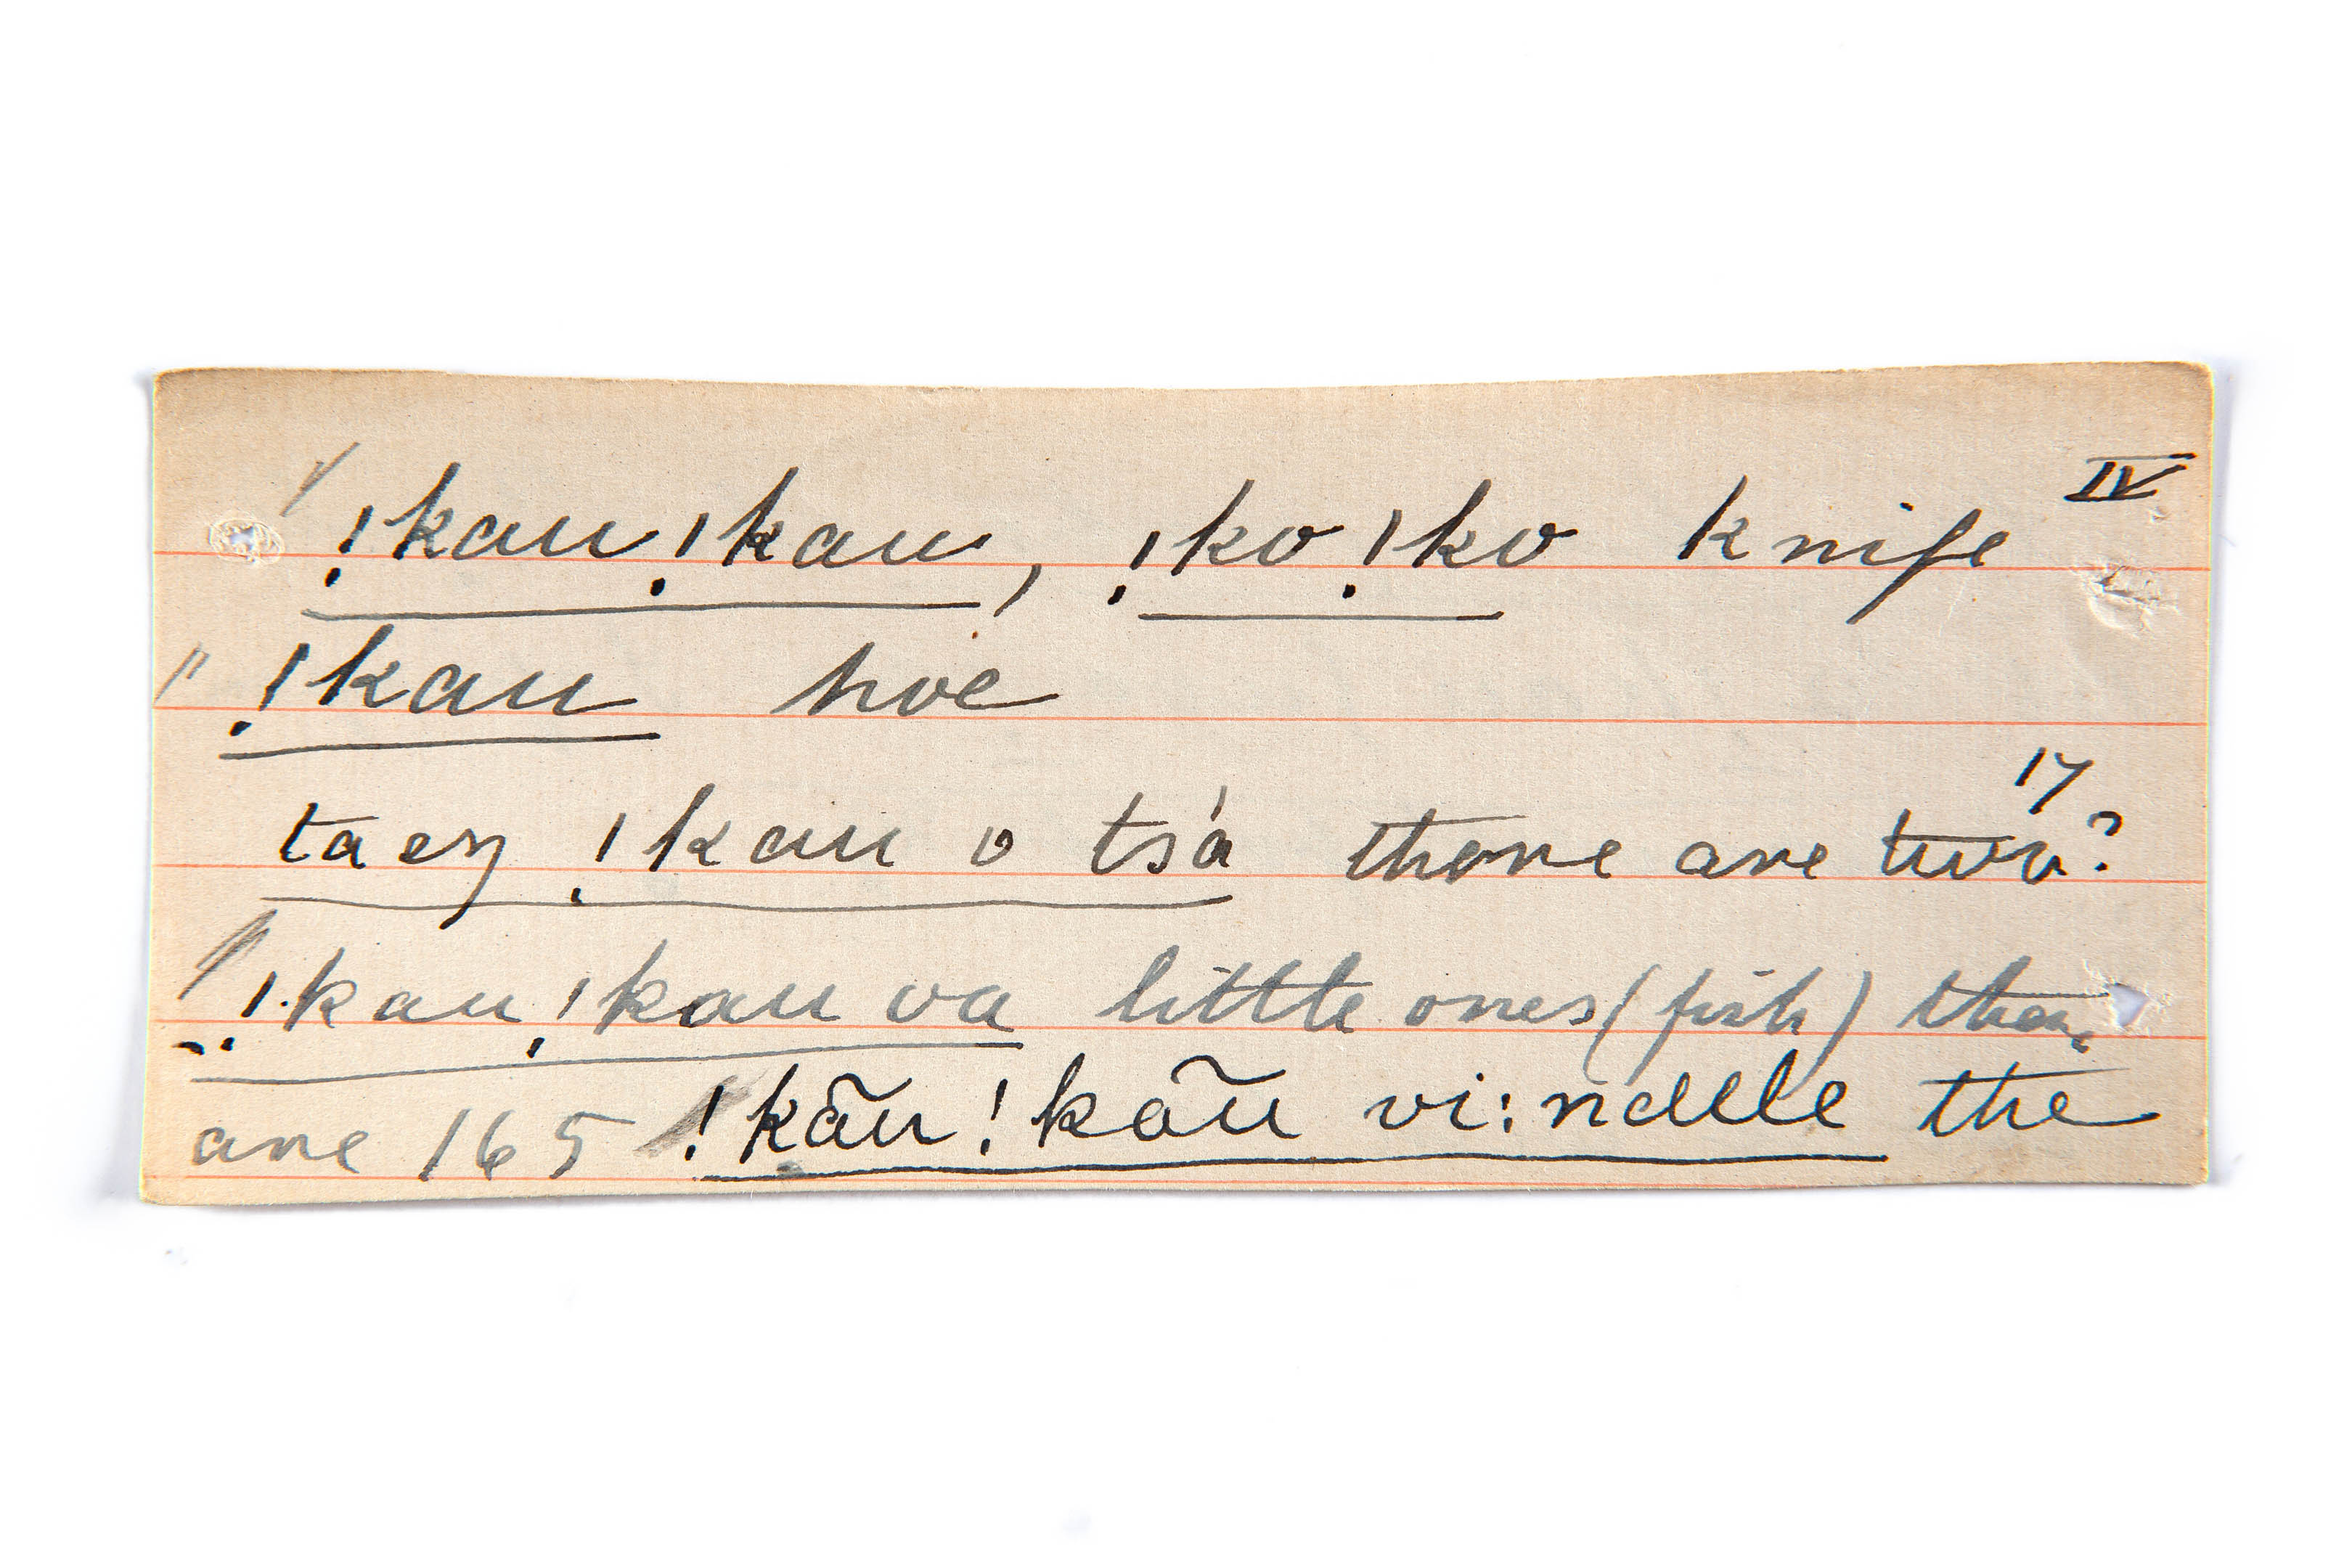 IV
!kau!kau, !ko!ko knife
!kau hoe
17
taeŋ !kau o tsá there are two?
!kau!kau va little ones (fish) there
are 165 !kãu!kãu vi:ndele the